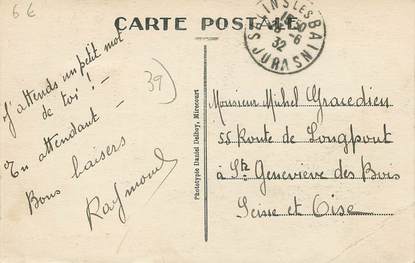 6 €
CARTE POSTALE
SALINS LES BAINS
18-30
-6
32
JURA
39
J'attends un petit mot
de toi ! -
En attendant -
Bons baisers
Raymond
Phototypie Daniel Delboy, Mirecourt
Monsieur Michel Gracedieu
55 Route de Longpont
à Ste Geneviève des Bois
Seine et Oise